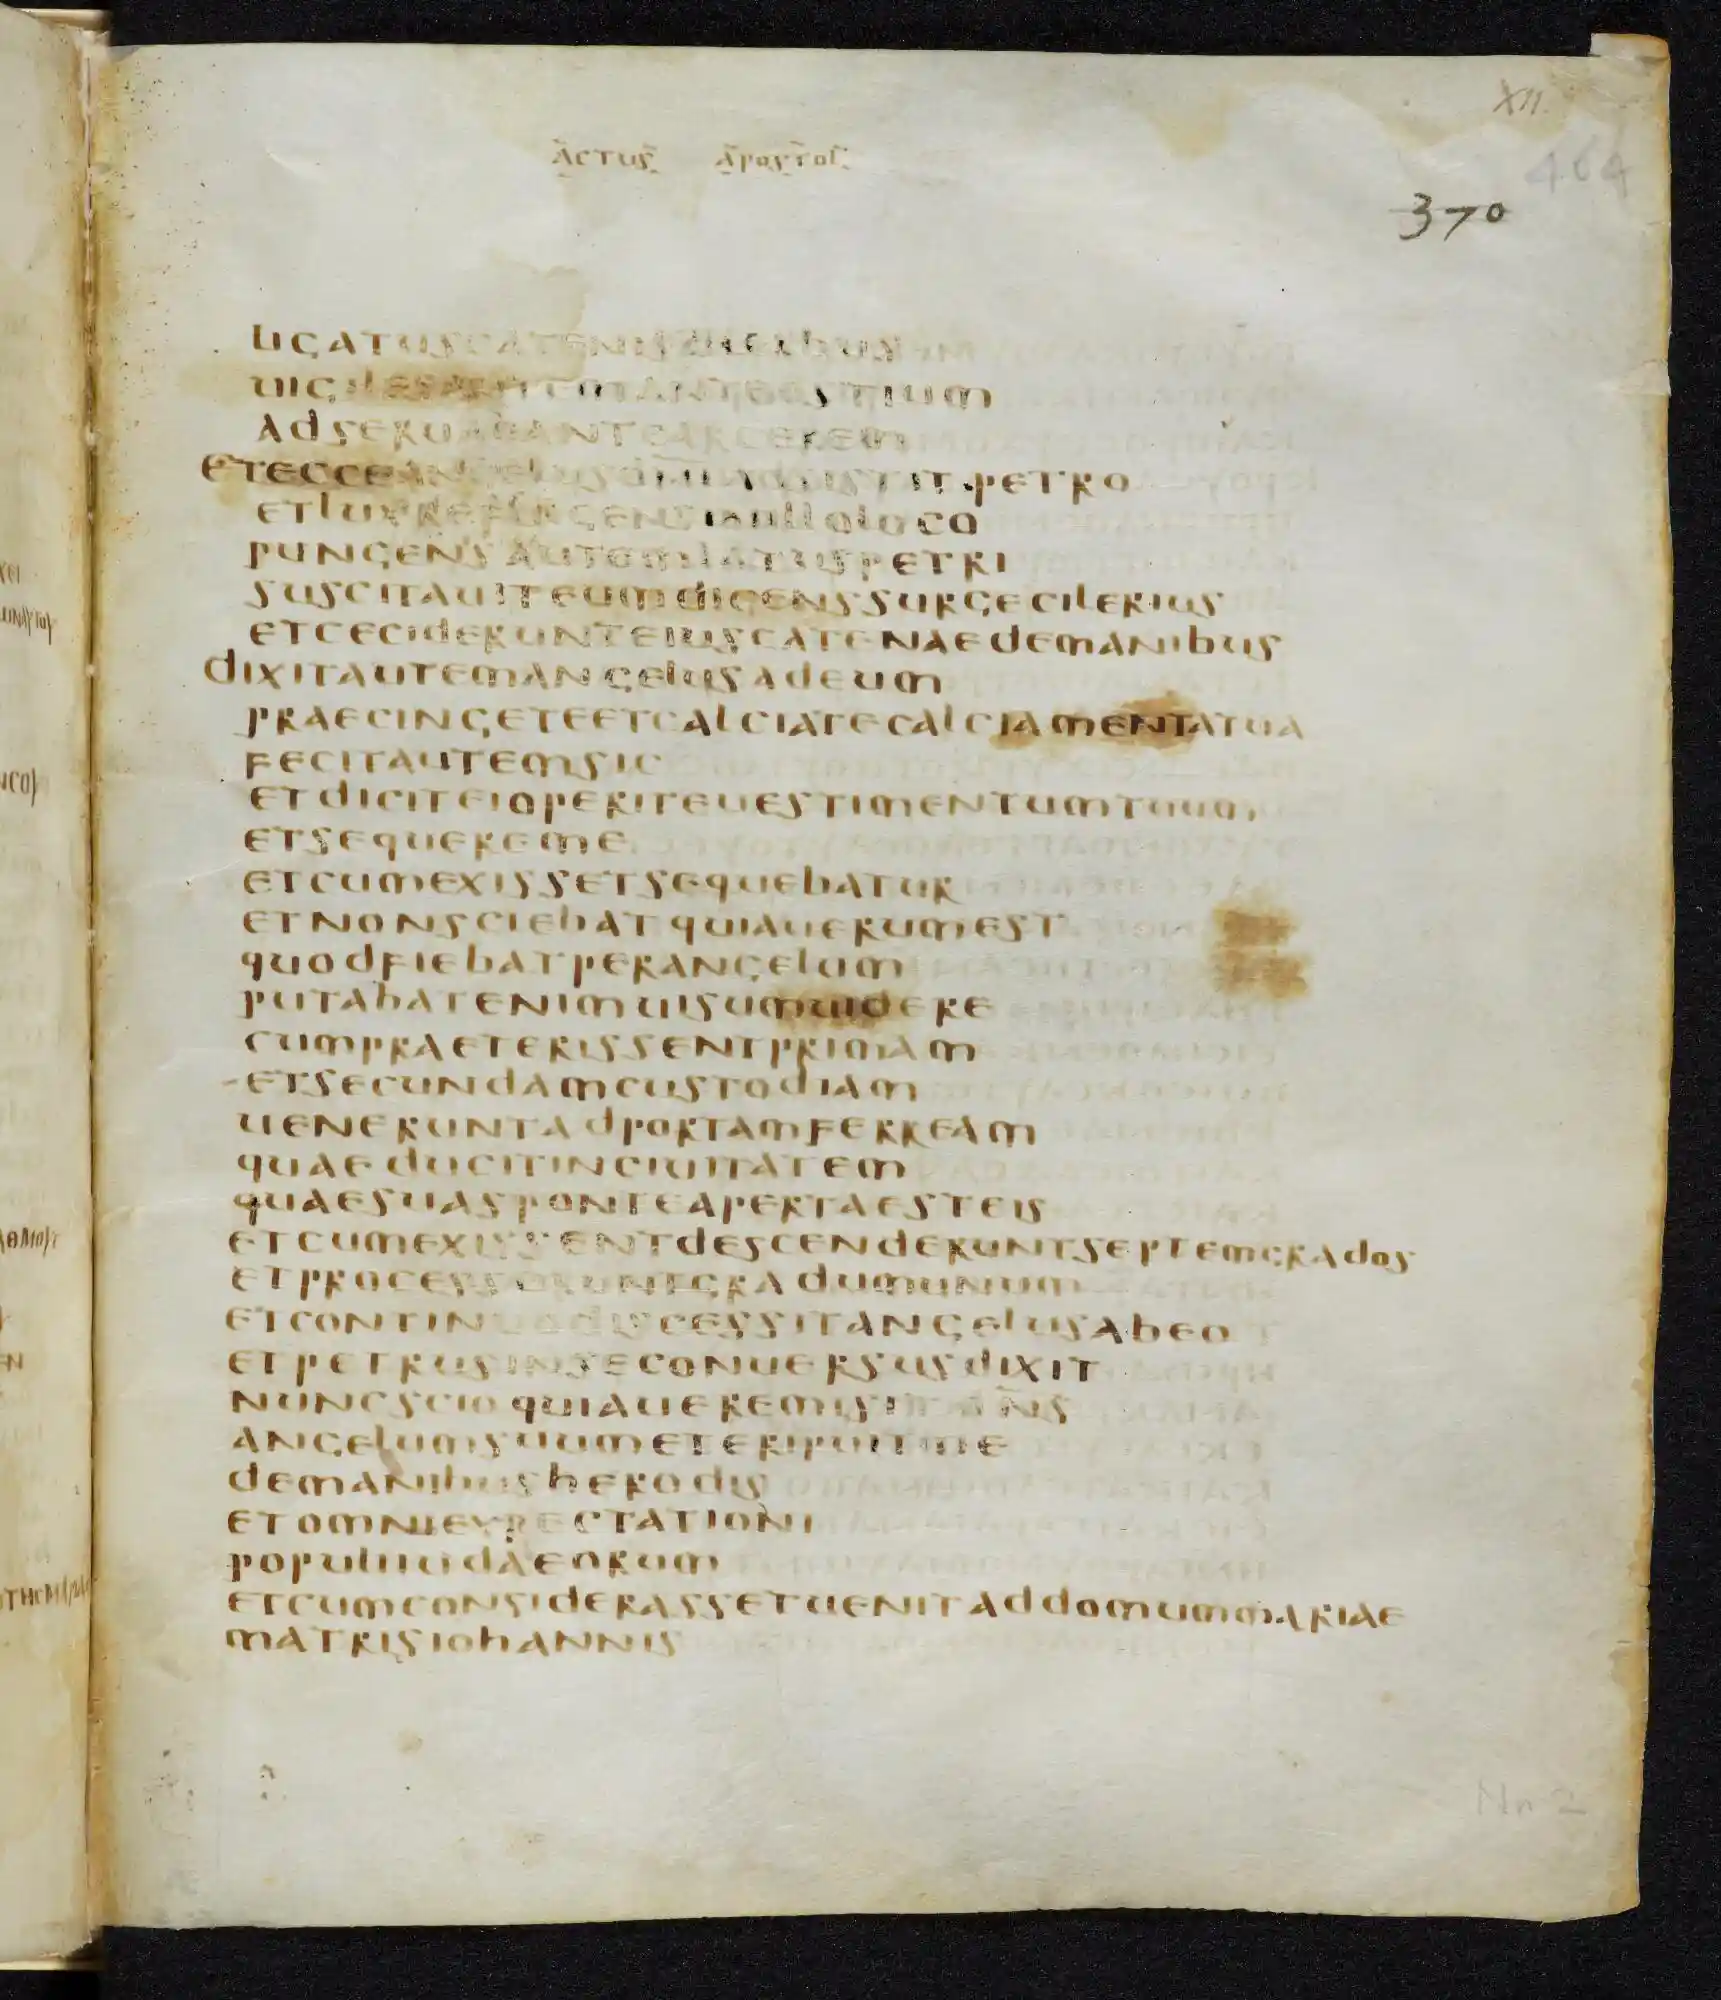 XII.
464
ACTUS APOSTOL
370
LIGATUSCATENISDUABUS
UIGILESAUTEMANTEOSTIUM
ADSERUABANTCARCEREM
ETECCEANGELUSDNIADSISTITPETRO
ETLUXREFULGENSINILLOLOCO
PUNGENSAUTEMLATUSPETRI
SUSCITAUITEUMDICENSSURGECILERIUS
ETCECIDERUNTEIUSCATENAEDEMANIBUS
DIXITAUTEMANGELUSADEUM
PRAECINGETEETCALCIATECALCIAMENTATUA
FECITAUTEMSIC
ETDICITEIOPERITEUESTIMENTUMTUUM
ETSEQUEREME
ETCUMEXISSETSEQUEBATUR
ETNONSCIEBATQUIAUERUMEST
QUODFIEBATPERANGELUM
PUTABATENIMUISUMUIDERE
CUMPRAETERISSENTPRIMAM
ETSECUNDAMCUSTODIAM
UENERUNTADPORTAMFERREAM
QUAEDUCITINCIUITATEM
QUAESUASPONTEAPERTAESTEIS
ETCUMEXISSENTDESCENDERUNTSEPTEMGRADOS
ETPROCESSERUNTGRADUMUNUM
ETCONTINUODISCESSITANGELUSABEO
ETPETRUSINSECONUERSUSDIXIT
NUNCSCIOQUIAUEREMISITDNS
ANGELUMSUUMETERIPUITME
DEMANIBUSHERODIS
ETOMNIEXPECTATIONI
POPULIIUDAEORUM
ETCUMCONSIDERASSETUENITADDOMUMMARIAE
MATRISIOHANNIS
Nn 2